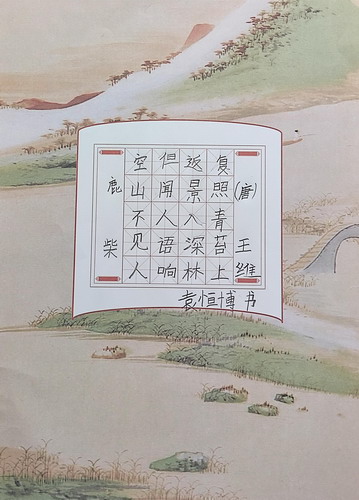 鹿柴
空山不见人
但闻人语响
返景入深林
复照青苔上
(唐)王维
袁恒博书